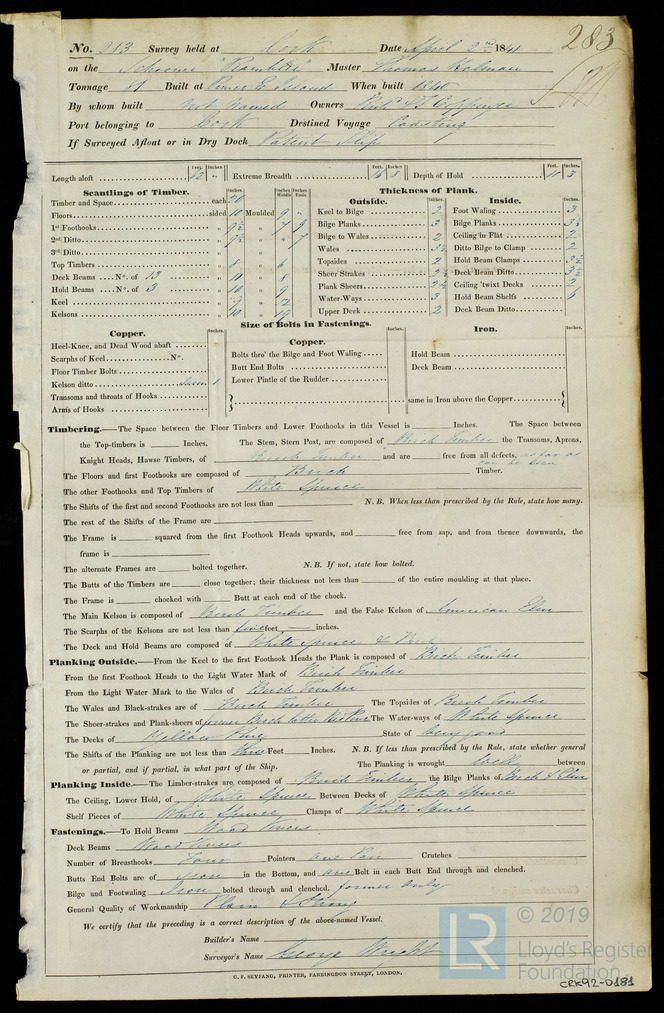 283
No. 213 Survey held at Cork Date April 2nd 1841
on the Schooner "Rambler" Master Thomas Holman
Tonnage 81 Built at Prince E. Island When built 1840
By whom built Not Named Owners
Port belonging to Cork Destined Voyage Coasting
If Surveyed Afloat or in Dry Dock Patent Slip
Feet. Inches. Feet. Inches. Feet. Inches.
Length aloft 62 " Extreme Breadth 16 8 Depth of Hold 11 3
Scantlings of Timber. Thickness of Plank.
Inches. Inches Middle Inches Ends. Outside. Inches. Inside. Inches.
Timber and Space each 20 Keel to Bilge 2 Foot Waling 3
Floors sided 10 Moulded 9 " Bilge Planks 3 Bilge Planks 3
1st Foothooks " 9½ " 7 9 Bilge to Wales 2 Ceiling in Flat 2
2nd Ditto " 9½ " " 7 Wales 3½ Ditto Bilge to Clamp 2
3rd Ditto " " Topsides 2 Hold Beam Clamps 3½
Top Timbers " 8 " 6 Sheer Strakes 2½ Deck Beam Ditto 3½
Deck Beams No. of 13 " 11 " 8 Plank Sheers 2½ Ceiling 'twixt Decks 2
Hold Beams No. of 3 " 10 " 9 Water-Ways 3 Hold Beam Shelfs 6
Keel " 9 " 12 Upper Deck 2 Deck Beam Ditto
Kelsons " 10 " 19
Size of Bolts in Fastenings.
Copper. Inches. Copper. Inches. Iron. Inches.
Heel-Knee, and Dead Wood abaft
Scarphs of Keel No. Bolts thro' the Bilge and Foot Waling Hold Beam
Floor Timber Bolts Butt End Bolts Deck Beam
Kelson ditto Iron 1 Lower Pintle of the Rudder
Transoms and throats of Hooks same in Iron above the Copper
Arms of Hooks
Timbering.—The Space between the Floor Timbers and Lower Foothooks in this Vessel is Inches. The Space between
the Top-timbers is Inches. The Stem, Stern Post, are composed of Birch Timber the Transoms, Aprons,
Knight Heads, Hawse Timbers, of Birch Timber and are free from all defects, as far as can be seen
The Floors and first Foothooks are composed of Birch Timber.
The other Foothooks and Top Timbers of White Spruce
The Shifts of the first and second Foothooks are not less than N.B. When less than prescribed by the Rule, state how many.
The rest of the Shifts of the Frame are
The Frame is squared from the first Foothook Heads upwards, and free from sap, and from thence downwards, the
frame is
The alternate Frames are bolted together. N.B. If not, state how bolted.
The Butts of the Timbers are close together; their thickness not less than of the entire moulding at that place.
The Frame is chocked with Butt at each end of the chock.
The Main Kelson is composed of Birch Timber and the False Kelson of American Elm
The Scarphs of the Kelsons are not less than five feet inches.
The Deck and Hold Beams are composed of White Spruce & Birch
Planking Outside.—From the Keel to the first Foothook Heads the Plank is composed of Birch Timber
From the first Foothook Heads to the Light Water Mark of Birch Timber
From the Light Water Mark to the Wales of Birch Timber
The Wales and Black-strakes are of Birch Timber The Topsides of Birch Timber
The Sheer-strakes and Plank-sheers of former Birch latter Red Pine The Water-ways of White Spruce
The Decks of Yellow Pine State of very good
The Shifts of the Planking are not less than three Feet Inches. N.B. If less than prescribed by the Rule, state whether general
or partial, and if partial, in what part of the Ship. The Planking is wrought well between
Planking Inside.—The Limber-strakes are composed of Birch Timber the Bilge Planks of Birch & Elm
The Ceiling, Lower Hold, of White Spruce Between Decks of White Spruce
Shelf Pieces of White Spruce Clamps of White Spruce
Fastenings.—To Hold Beams Wood Knees
Deck Beams Wood Knees
Number of Breasthooks Four Pointers one Pair Crutches
Butts End Bolts are of Iron in the Bottom, and one Bolt in each Butt End through and clenched.
Bilge and Footwaling Iron bolted through and clenched. former only
General Quality of Workmanship Plain & Strong
We certify that the preceding is a correct description of the above-named Vessel.
Builder's Name
Surveyor's Name George Wright
C. F. SEYFANG, PRINTER, FARRINGDON STREET, LONDON.
LR © 2019
Lloyd's Register
Foundation
CRK92-0181